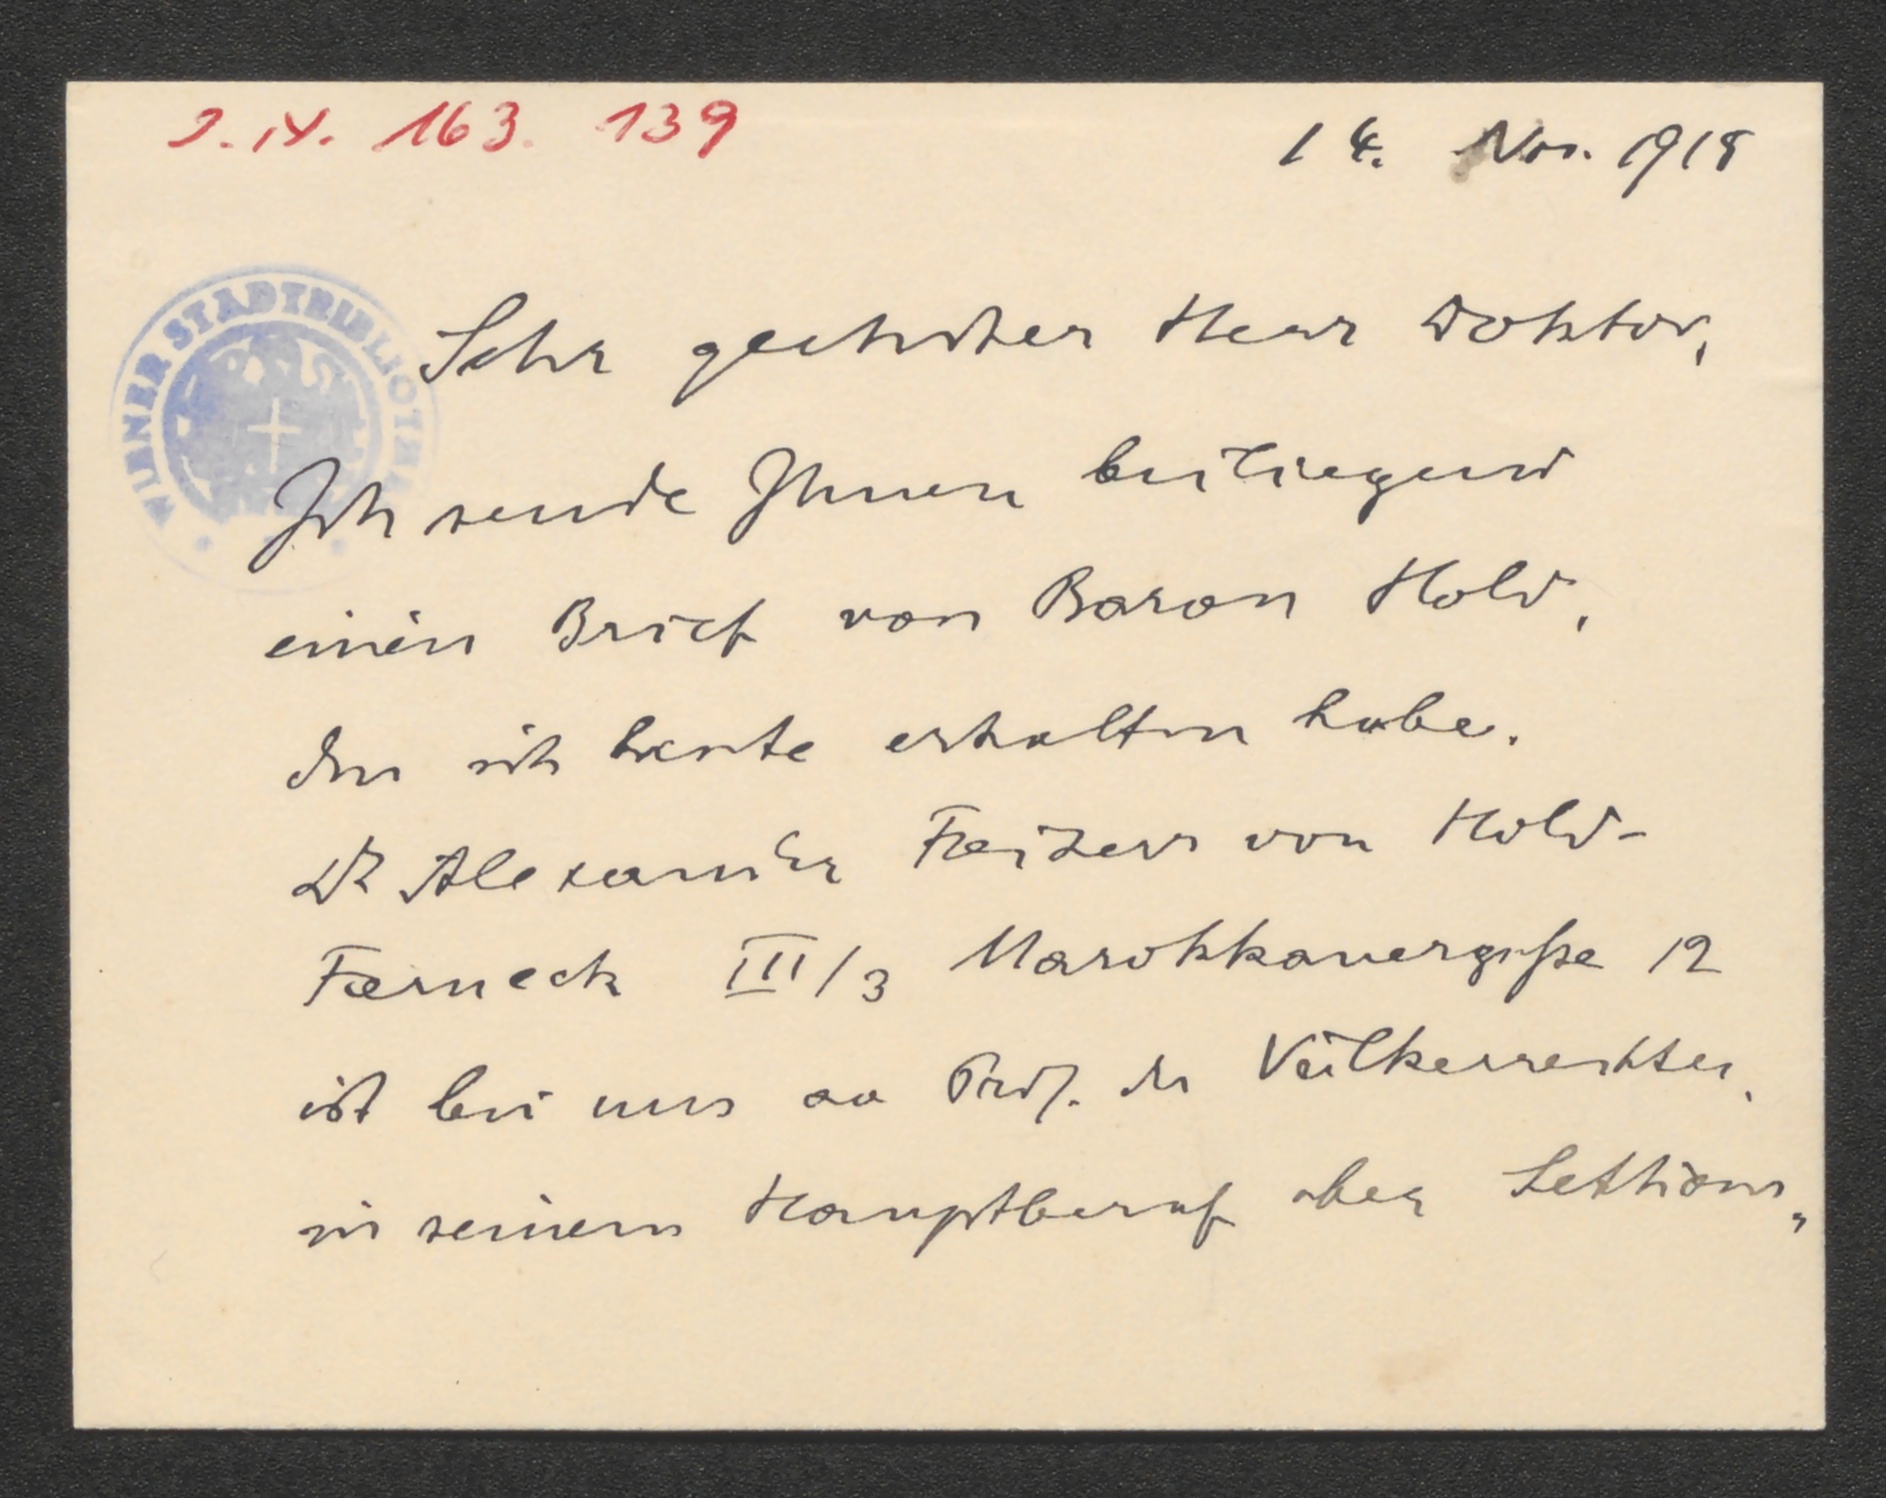 J.N. 163.139
14. Nov. 1918
WIENER STADTBIBLIOTHEK
Sehr geehrter Herr Doktor,
Ich sende Ihnen beiliegend
einen Brief von Baron Hold,
den ich heute erhalten habe.
Dr Alexander Freiherr von Hold-
Ferneck III/3 Marokkanergasse 12
ist bei uns ao Prof. des Völkerrechtes,
in seinem Hauptberuf aber Sektions-